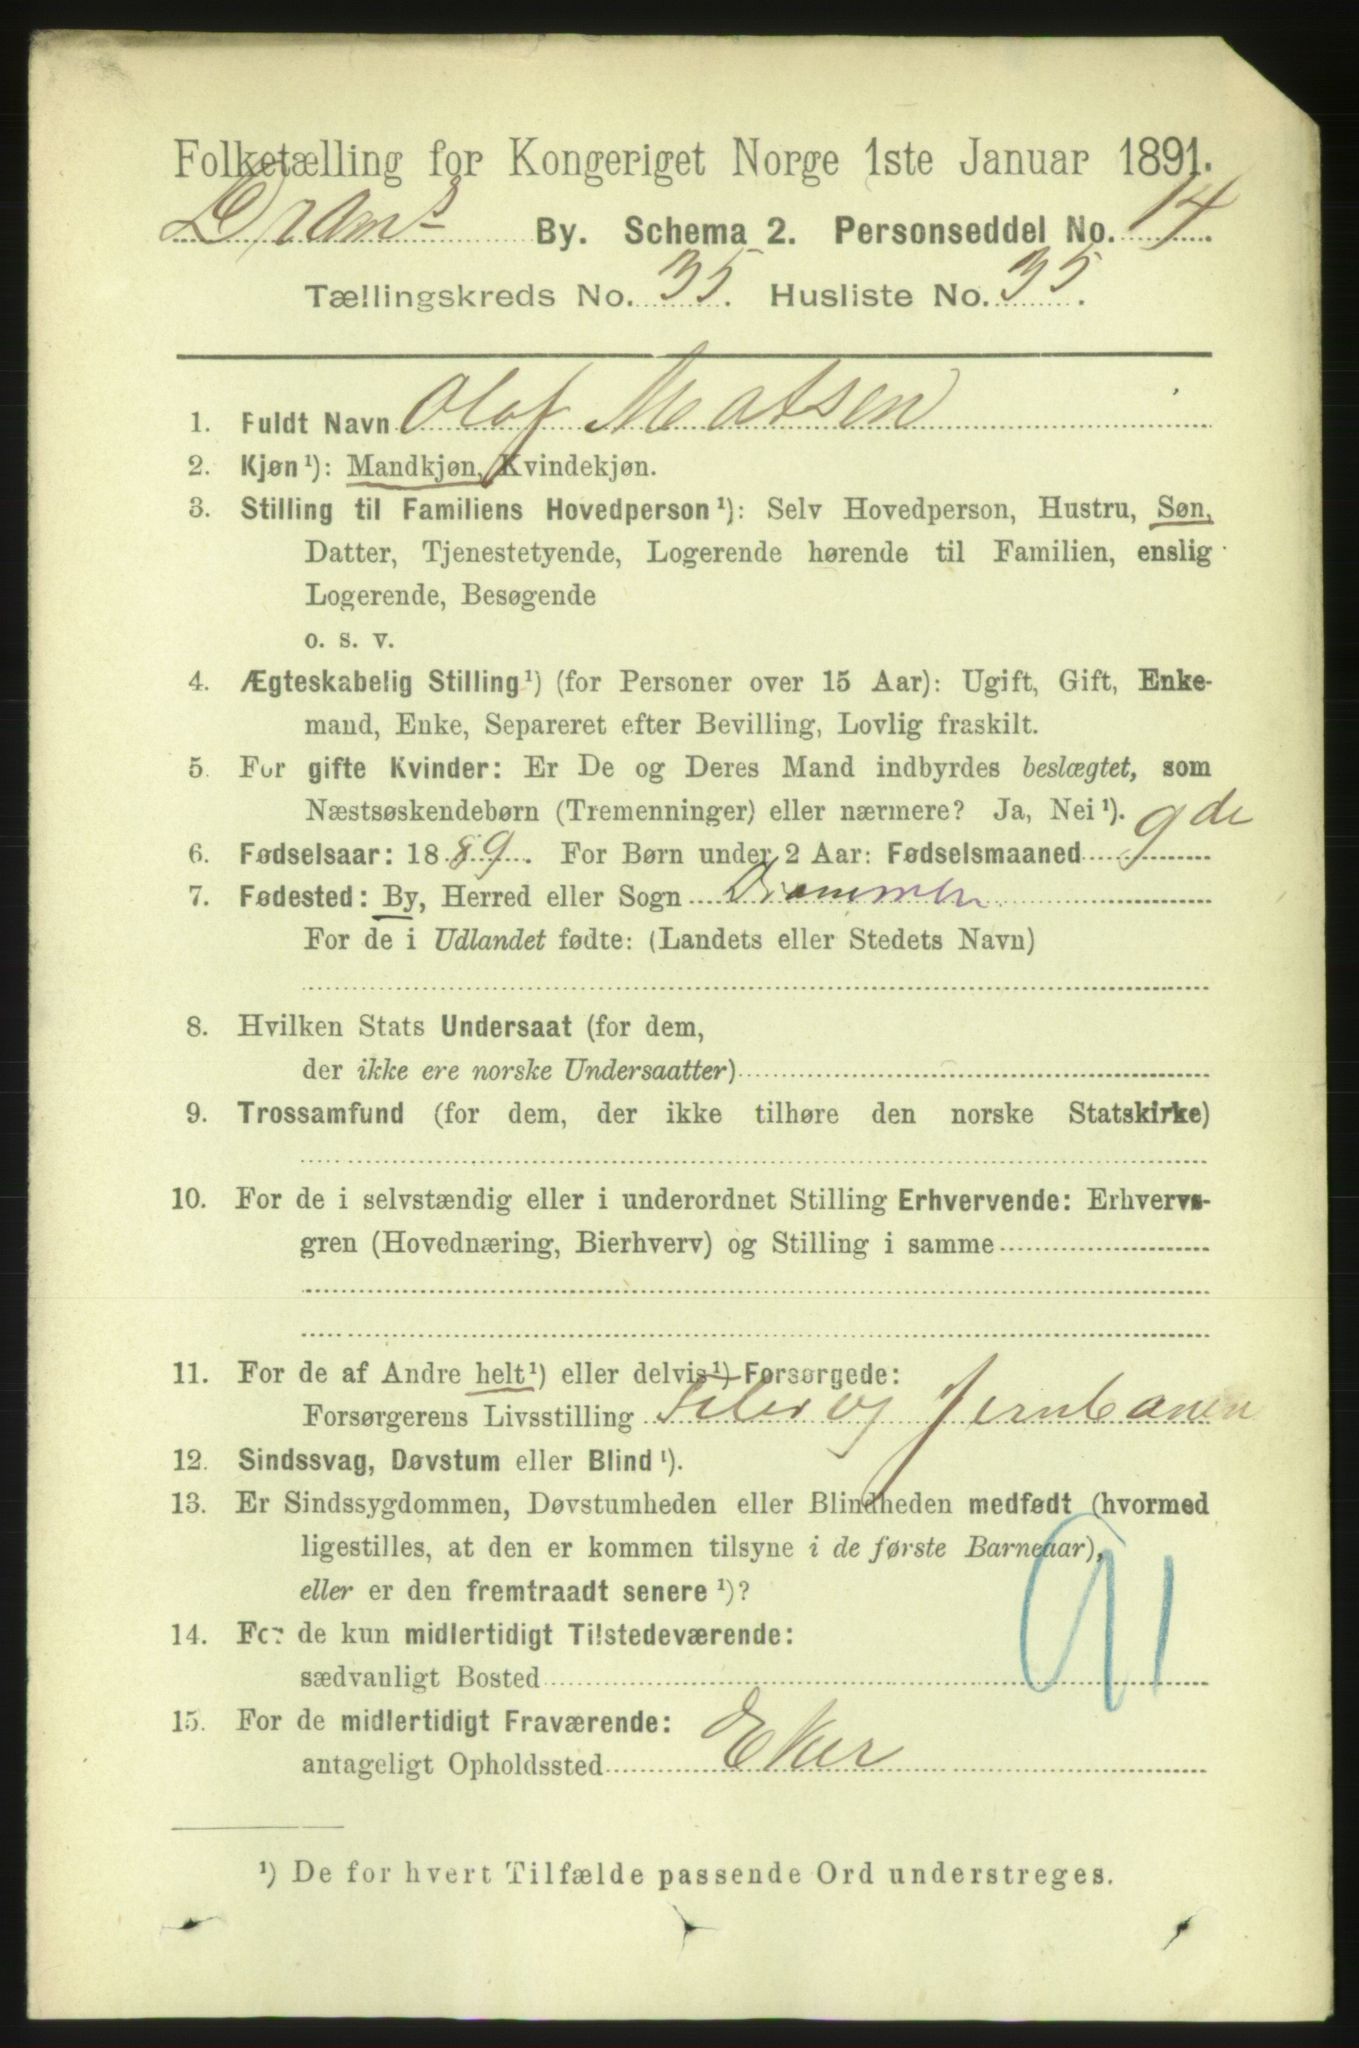 Folketælling for Kongeriget Norge 1ste Januar 1891.
Drams By. Schema 2. Personseddel No. 14
Tællingskreds No. 35. Husliste No. 35.
1. Fuldt Navn Olof Matsen
2. Kjøn¹): Mandkjøn, Kvindekjøn.
3. Stilling til Familiens Hovedperson¹): Selv Hovedperson, Hustru, Søn,
Datter, Tjenestetyende, Logerende hørende til Familien, enslig
Logerende, Besøgende
o. s. v.
4. Ægteskabelig Stilling¹) (for Personer over 15 Aar): Ugift, Gift, Enke-
mand, Enke, Separeret efter Bevilling, Lovlig fraskilt.
5. For gifte Kvinder: Er De og Deres Mand indbyrdes beslægtet, som
Næstsøskendebørn (Tremenninger) eller nærmere? Ja, Nei¹).
6. Fødselsaar: 1889. For Børn under 2 Aar: Fødselsmaaned 9de
7. Fødested: By, Herred eller Sogn Drammen
For de i Udlandet fødte: (Landets eller Stedets Navn)
8. Hvilken Stats Undersaat (for dem,
der ikke ere norske Undersaatter)
9. Trossamfund (for dem, der ikke tilhøre den norske Statskirke)
10. For de i selvstændig eller i underordnet Stilling Erhvervende: Erhvervs-
gren (Hovednæring, Bierhverv) og Stilling i samme
11. For de af Andre helt¹) eller delvis¹) Forsørgede:
Forsørgerens Livsstilling og Jernbanen
12. Sindssvag, Døvstum eller Blind¹).
13. Er Sindssygdommen, Døvstumheden eller Blindheden medfødt (hvormed
ligestilles, at den er kommen tilsyne i de første Barneaar),
eller er den fremtraadt senere¹)?
91
14. For de kun midlertidigt Tilstedeværende:
sædvanligt Bosted
15. For de midlertidigt Fraværende:
antageligt Opholdssted Eker
¹) De for hvert Tilfælde passende Ord understreges.